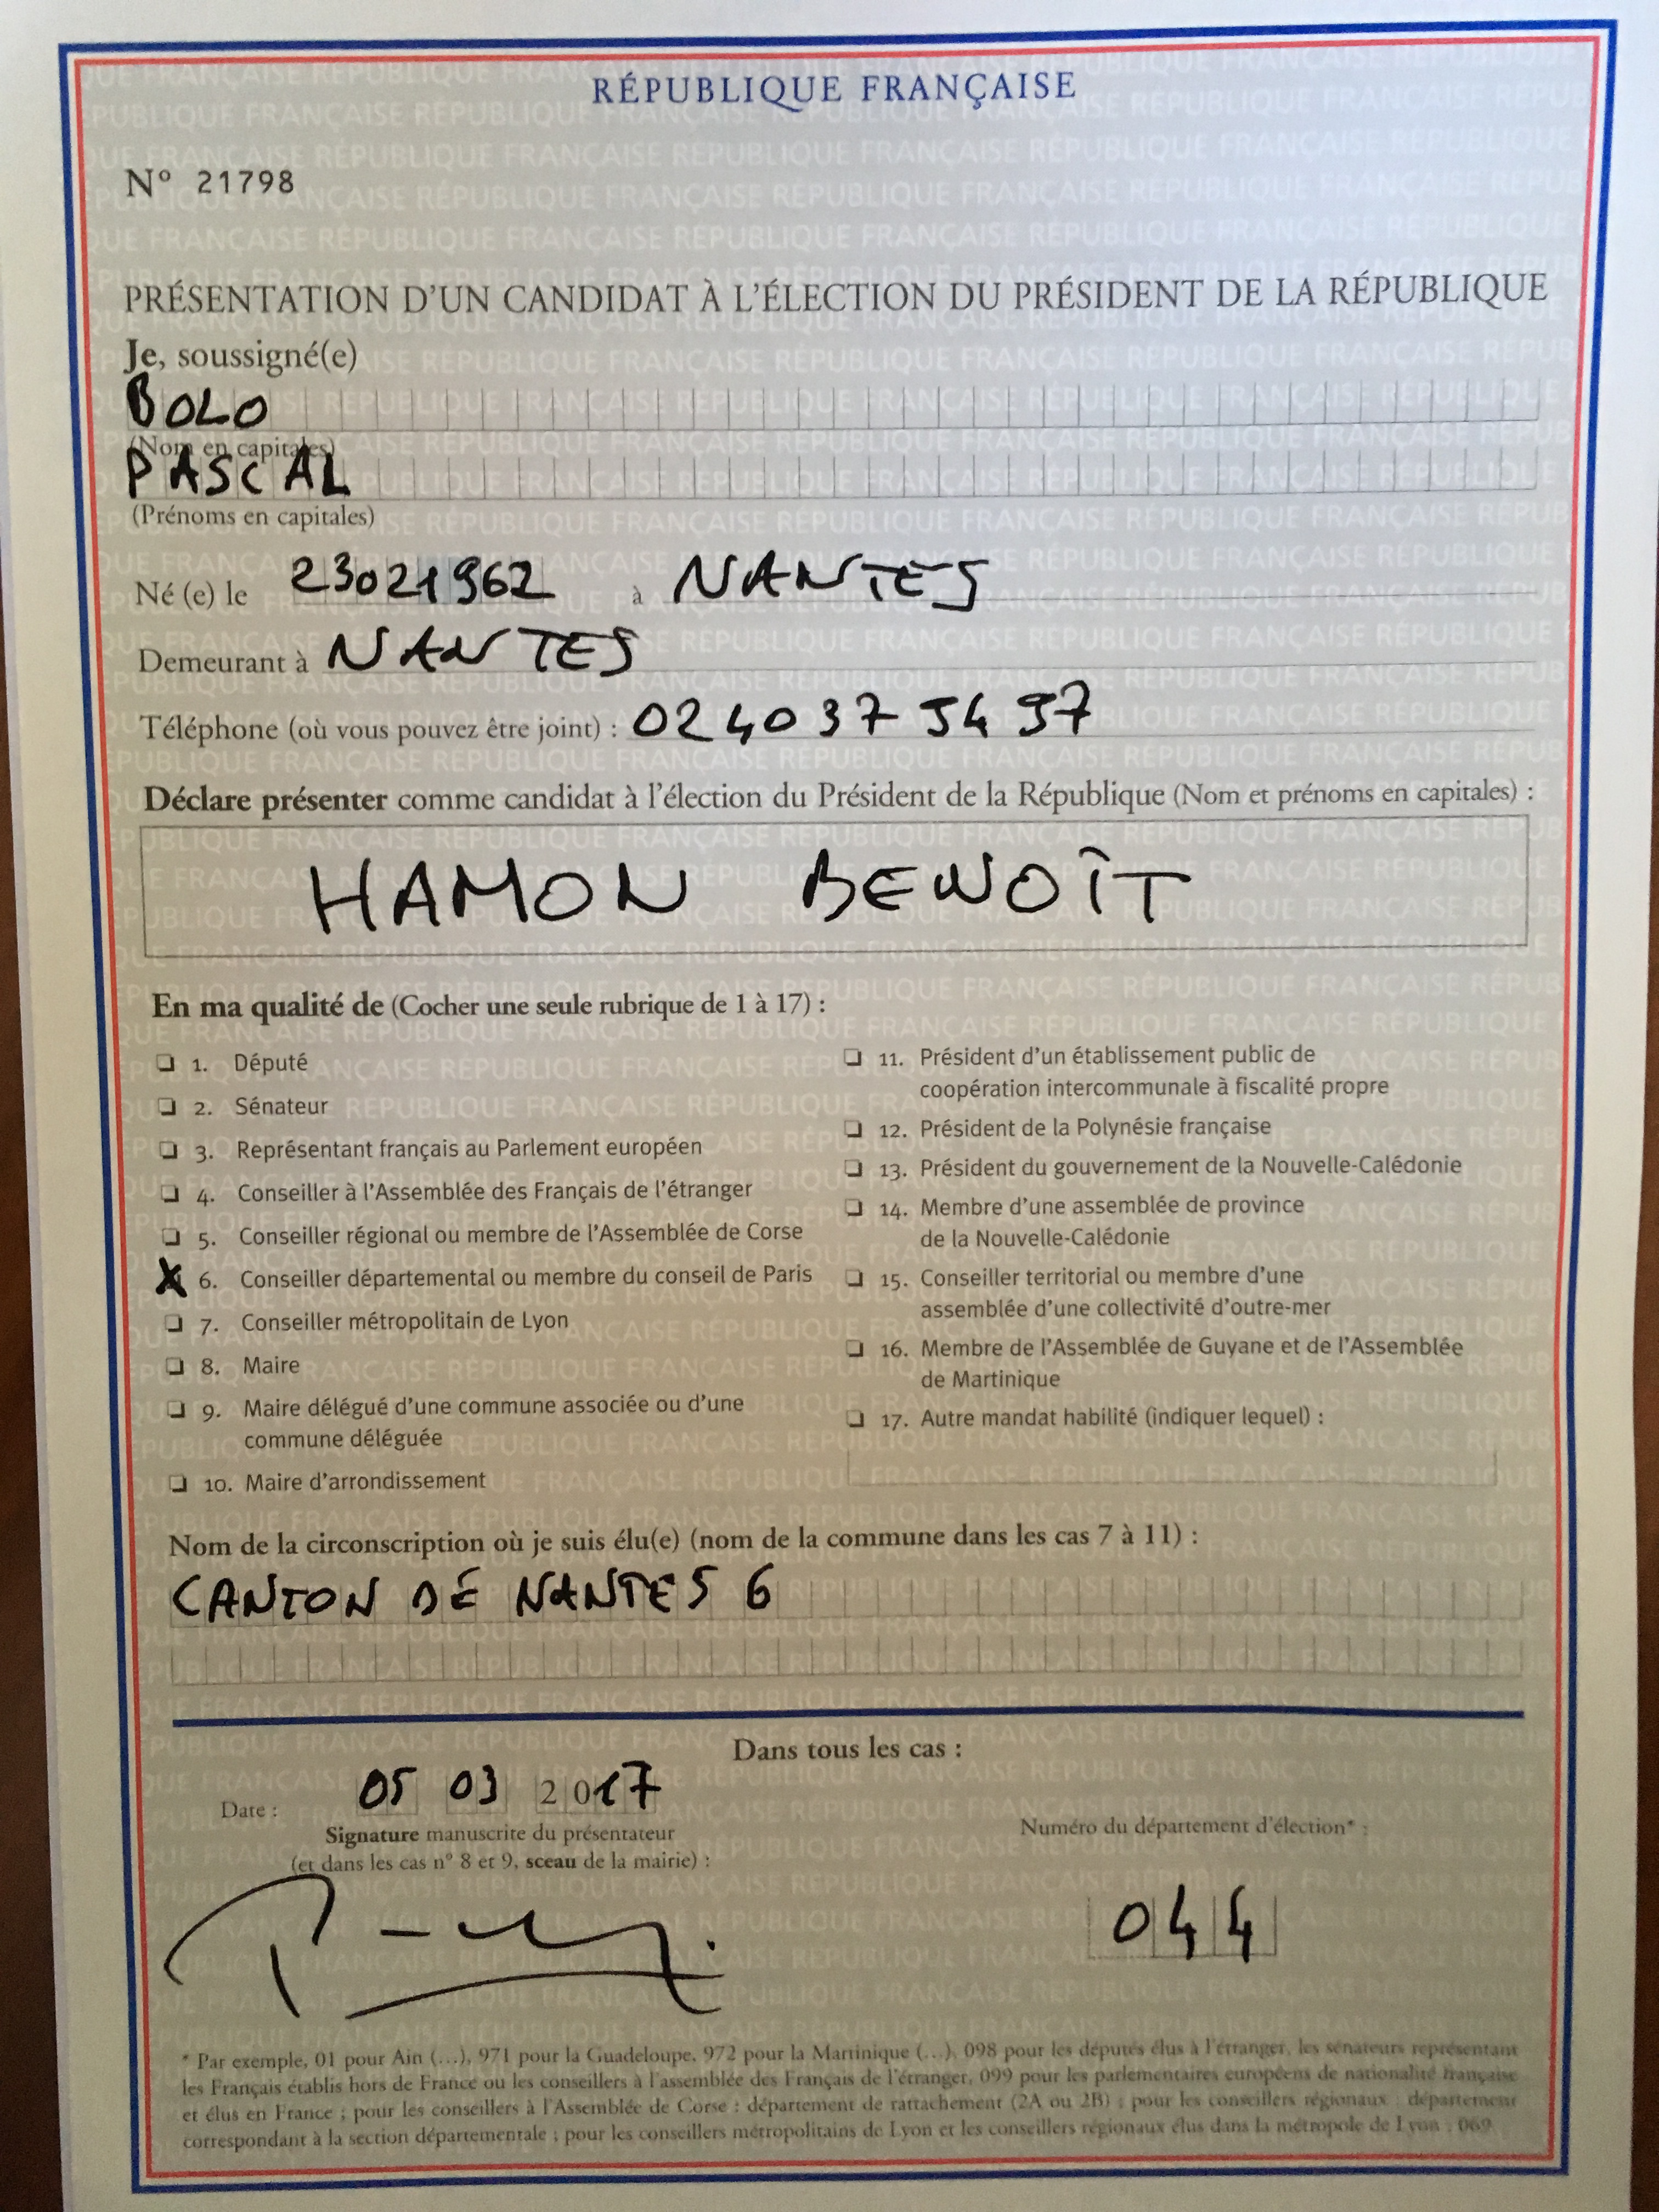 RÉPUBLIQUE FRANÇAISE
N° 21798
PRÉSENTATION D'UN CANDIDAT À L'ÉLECTION DU PRÉSIDENT DE LA RÉPUBLIQUE
Je, soussigné(e)
BOLO
(Nom en capitales)
PASCAL
(Prénoms en capitales)
Né (e) le 23021962 à NANTES
Demeurant à NANTES
Téléphone (où vous pouvez être joint) : 02 40 37 54 97
Déclare présenter comme candidat à l'élection du Président de la République (Nom et prénoms en capitales) :
HAMON BENOÎT
En ma qualité de (Cocher une seule rubrique de 1 à 17) :
1. Député
2. Sénateur
3. Représentant français au Parlement européen
4. Conseiller à l'Assemblée des Français de l'étranger
5. Conseiller régional ou membre de l'Assemblée de Corse
X 6. Conseiller départemental ou membre du conseil de Paris
7. Conseiller métropolitain de Lyon
8. Maire
9. Maire délégué d'une commune associée ou d'une
commune déléguée
10. Maire d'arrondissement
11. Président d'un établissement public de
coopération intercommunale à fiscalité propre
12. Président de la Polynésie française
13. Président du gouvernement de la Nouvelle-Calédonie
14. Membre d'une assemblée de province
de la Nouvelle-Calédonie
15. Conseiller territorial ou membre d'une
assemblée d'une collectivité d'outre-mer
16. Membre de l'Assemblée de Guyane et de l'Assemblée
de Martinique
17. Autre mandat habilité (indiquer lequel) :
Nom de la circonscription où je suis élu(e) (nom de la commune dans les cas 7 à 11) :
CANTON DE NANTES 6
Dans tous les cas :
Date : 05 03 2017
Signature manuscrite du présentateur
(et dans les cas n° 8 et 9, sceau de la mairie) :
Numéro du département d'élection* :
044
* Par exemple, 01 pour Ain (...), 971 pour la Guadeloupe, 972 pour la Martinique (...), 098 pour les députés élus à l'étranger, les sénateurs représentant
les Français établis hors de France ou les conseillers à l'assemblée des Français de l'étranger, 099 pour les parlementaires européens de nationalité française
et élus en France ; pour les conseillers à l'Assemblée de Corse : département de rattachement (2A ou 2B) ; pour les conseillers régionaux : département
correspondant à la section départementale ; pour les conseillers métropolitains de Lyon et les conseillers régionaux élus dans la métropole de Lyon : 069